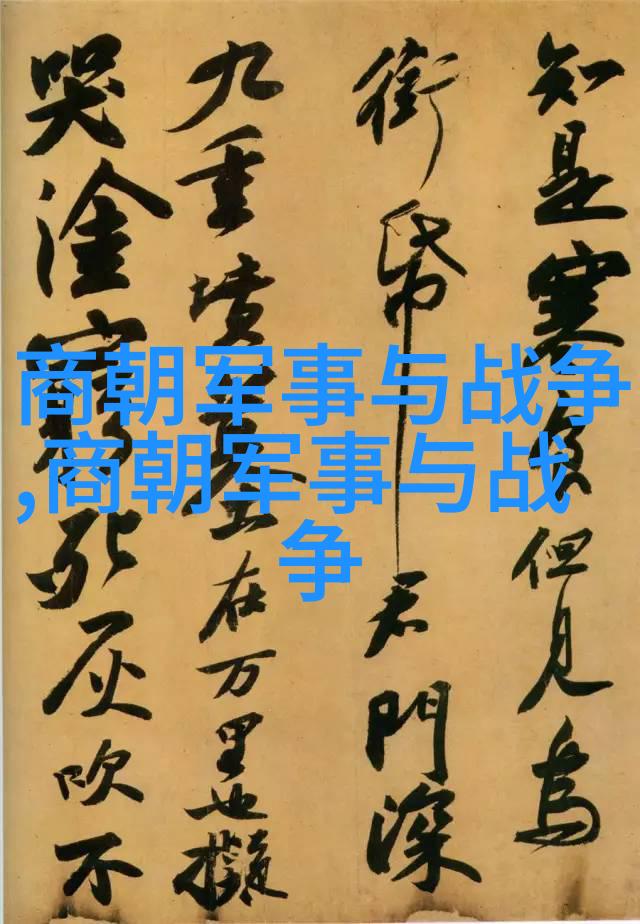 知是寒食但見烏
銜帋君門深
九重墳墓在万里也擬
哭塗窮死灰吹不
商朝军事与战争
,商朝军事与战
争